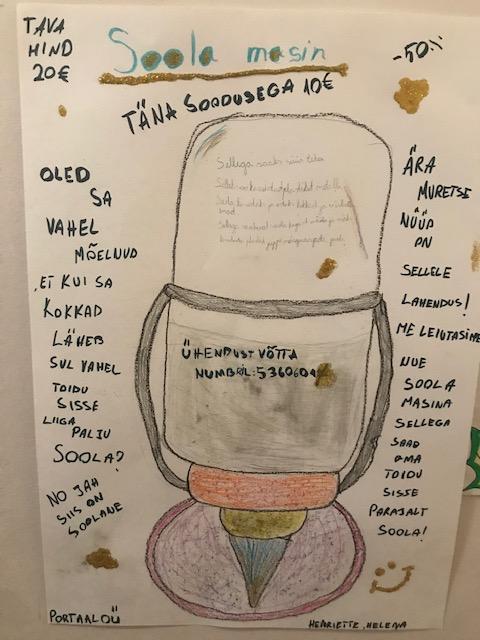 TAVA
HIND
20€
Soola masin
-50%
TÄNA SOODUSEGA 10€
OLED
SA
VAHEL
MÕELNUD
,ET KUI SA
KOKKAD
LÄHEB
SUL VAHEL
TOIDU
SISSE
LIIGA
PALJU
SOOLA?
NO JAH
SIIS ON
SOOLANE
Sellega saab
teha
ÜHENDUST VÕTTA
NUMBRIL: 5360604
ÄRA
MURETSE
NÜÜD
ON
SELLELE
LAHENDUS!
ME LEIUTASIME
UUE
SOOLA
MASINA
SELLEGA
SAAD
OMA
TOIDU
SISSE
PARAJALT
SOOLA!
PORTAAL OÜ
HENRIETTE, HELENA